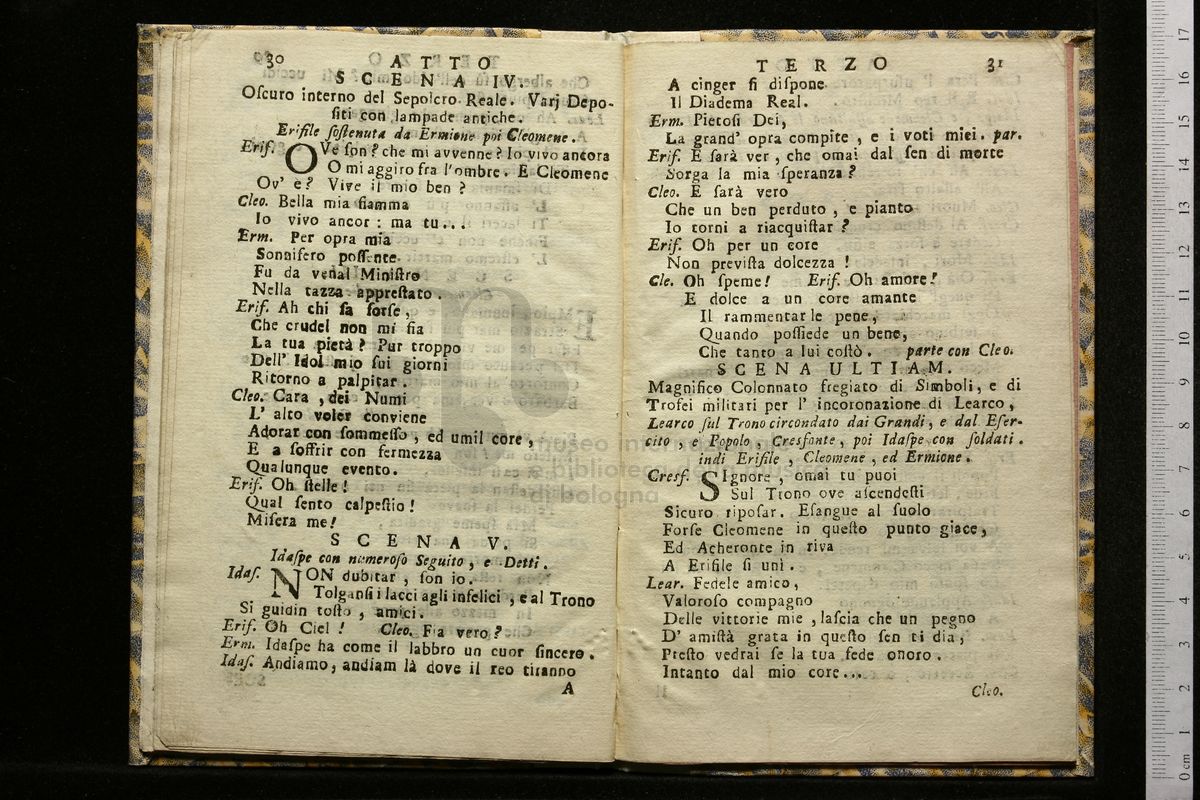 30 ATTO
SCENA IV.
Oſcuro interno del Sepolcro Reale. Varj Depo-
ſiti con lampade antiche.
Erifile ſoſtenuta da Ermione poi Cleomene.
Erif. OVe ſon? che mi avvenne? Io vivo ancora
O mi aggiro fra l'ombre. E Cleomene
Ov' e? Vive il mio ben?
Cleo. Bella mia fiamma
Io vivo ancor: ma tu...
Erm. Per opra mia
Sonnifero poſſente
Fu da venal Miniſtro
Nella tazza appreſtato.
Erif. Ah chi ſa forſe,
Che crudel non mi ſia
La tua pietà? Pur troppo
Dell' Idol mio ſui giorni
Ritorno a palpitar.
Cleo. Cara, dei Numi
L' alto voler conviene
Adorar con ſommeſſo, ed umil core,
E a ſoffrir con fermezza
Qualunque evento.
Erif. Oh ſtelle!
Qual ſento calpeſtio!
Miſera me!
SCENA V.
Idaſpe con numeroſo Seguito, e Detti.
Idaſ. NON dubitar, ſon io.
Tolganſi i lacci agli infelici, e al Trono
Si guidin toſto, amici.
Erif. Oh Ciel! Cleo. Fia vero?
Erm. Idaſpe ha come il labbro un cuor ſincero.
Idaſ. Andiamo, andiam là dove il reo tiranno
A
TERZO 31
A cinger ſi diſpone
Il Diadema Real.
Erm. Pietoſi Dei,
La grand' opra compite, e i voti miei. par.
Erif. E ſarà ver, che omai dal ſen di morte
Sorga la mia ſperanza?
Cleo. E ſarà vero
Che un ben perduto, e pianto
Io torni a riacquiſtar?
Erif. Oh per un core
Non previſta dolcezza!
Cle. Oh ſpeme! Erif. Oh amore!
E dolce a un core amante
Il rammentar le pene,
Quando poſſiede un bene,
Che tanto a lui coſtò. parte con Cleo.
SCENA ULTIAM.
Magnifico Colonnato fregiato di Simboli, e di
Trofei militari per l' incoronazione di Learco,
Learco ſul Trono circondato dai Grandi, e dal Eſer-
cito, e Popolo, Cresfonte, poi Idaſpe con ſoldati.
indi Erifile, Cleomene, ed Ermione.
Cresf. SIgnore, omai tu puoi
Sul Trono ove aſcendeſti
Sicuro ripoſar. Eſangue al ſuolo
Forſe Cleomene in queſto punto giace,
Ed Acheronte in riva
A Erifile ſi unì.
Lear. Fedele amico,
Valoroſo compagno
Delle vittorie mie, laſcia che un pegno
D' amiſtà grata in queſto ſen ti dia,
Preſto vedrai ſe la tua fede onoro.
Intanto dal mio core...
Cleo.